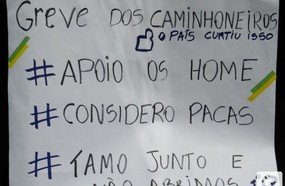 GREVE DOS CAMINHONEIROS
O PAÍS CURTIU ISSO
# APOIO OS HOME
# CONSIDERO PACAS
# TAMO JUNTO E
NÃO ABRIMOS